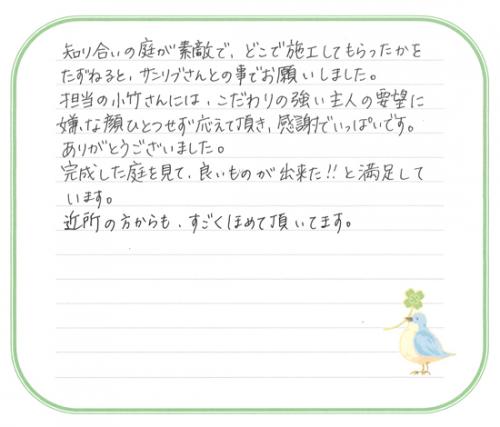 知り合いの庭が素敵で、どこで施工してもらったかを
たずねると、サンリブさんとの事でお願いしました。
担当の小竹さんには、こだわりの強い主人の要望に
嫌な顔ひとつせず応えて頂き、感謝でいっぱいです。
ありがとうございました。
完成した庭を見て、良いものが出来た!!と満足して
います。
近所の方からも、すごくほめて頂いてます。